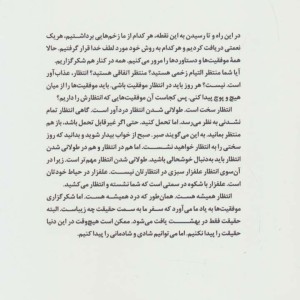 در این راه و تا رسیدن به این نقطه، هر کدام از ما زخم‌هایی برداشتیم، هر یک
نعمتی دریافت کردیم و هر کدام به روش خود مورد لطف خدا قرار گرفتیم. حالا
موفقیت‌ها و دستاوردها را مرور می‌کنیم. همه در کنار هم شکرگزاریم.
آیا شما منتظر التیام زخمی هستید؟ منتظر اتفاقی هستید؟ انتظار، عذاب‌آور
است. نیست؟ هر روز باید منتظر موفقیت باشی. باید موفقیت‌ها را از میان
هیچ و پوچ پیدا کنی. پس کجاست آن موفقیت‌هایی که انتظارش را داریم؟
انتظار سخت است. طولانی شدن انتظار درد آور است. گاهی انتظار تمام
نشدنی به نظر می‌رسد. اما تحمل کنید. حتی اگر غیرقابل تحمل باشد، باز هم
منتظر بمانید. به این می‌گویند صبر. صبح از خواب بیدار شوید و بدانید که روز
سختی را به انتظار خواهید نشست. اما هم در انتظار و هم در طولانی شدن
انتظار باید به‌دنبال خوشحالی باشید. طولانی شدن انتظار مهم‌تر است. زیرا در
آن‌سوی انتظار علفزار سبزی در انتظارتان نیست. علفزار، در حیاط خودتان
است. علفزار با شکوه در سمتی است که شما نشسته و انتظار می‌کشید.
انتظار همیشه هست. همان‌طور که درد همیشه هست. اما شکرگزاری
موفقیت‌ها به یاد ما می‌آورد که سفر ما به سمت حقیقت چه زیباست. البته
حقیقت فقط در بهشت یافت می‌شود. ممکن است هیچ‌وقت در این دنیا
حقیقت را پیدا نکنیم. اما می‌توانیم شادی و شادمانی را پیدا کنیم.